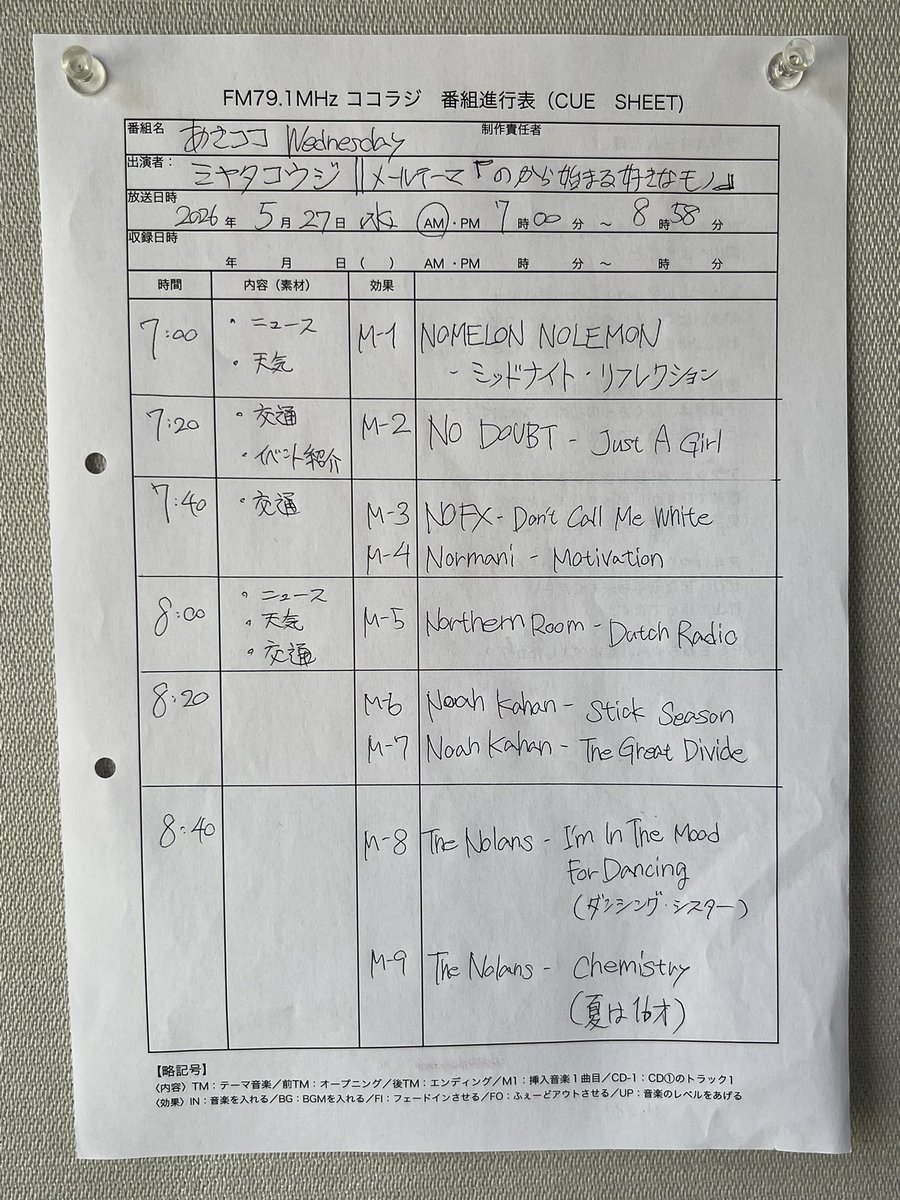 FM79.1MHz ココラジ 番組進行表（CUE SHEET）
番組名 あさココ Wednesday 制作責任者
出演者： ミヤタコウジ ‖メールテーマ『のから始まる好きなモノ』
放送日時 2026年 5月27日 水 AM・PM 7時00分 〜 8時58分
収録日時 年 月 日（ ） AM・PM 時 分 〜 時 分
時間 内容（素材） 効果
7:00 ・ニュース M-1 NOMELON NOLEMON
・天気 - ミッドナイト・リフレクション
7:20 ・交通 M-2 NO DOUBT - Just A Girl
・イベント紹介
7:40 ・交通 M-3 NOFX - Don't Call Me White
M-4 Normani - Motivation
8:00 ・ニュース M-5 Northern Room - Dutch Radio
・天気
・交通
8:20 M-6 Noah Kahan - Stick Season
M-7 Noah Kahan - The Great Divide
8:40 M-8 The Nolans - I'm In The Mood
For Dancing
（ダンシング・シスター）
M-9 The Nolans - Chemistry
（夏は16才）
【略記号】
〈内容〉TM：テーマ音楽／前TM：オープニング／後TM：エンディング／M1：挿入音楽1曲目／CD-1：CD①のトラック1
〈効果〉IN：音楽を入れる／BG：BGMを入れる／FI：フェードインさせる／FO：ふぇーどアウトさせる／UP：音楽のレベルをあげる